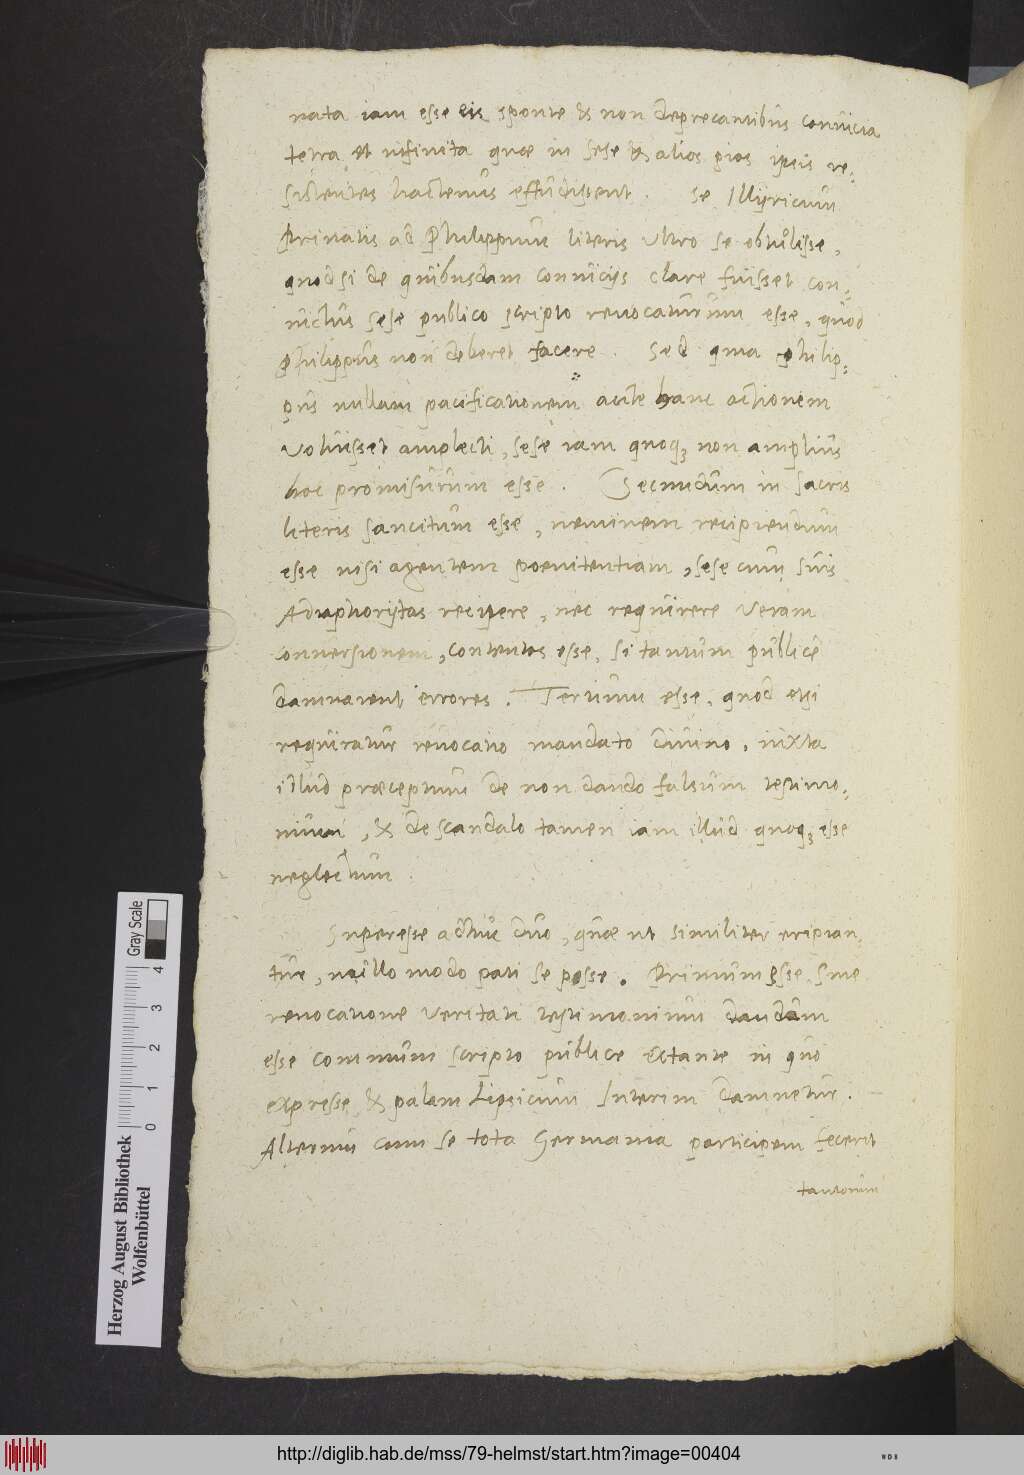 nata iam esse eis sponte & non deprecantibus conuicia
tetra et infinita quae in sese & alios pios ipsis re-
sistentes hactenus effudissent. Se Illyricum
Priuatis ad Philippum literis vltro se obtulisse,
quod si de quibusdam conuicijs clare fuisset con-
uictus sese publico scripto reuocaturum esse, quod
Philippus non deberet facere. Sed quia Philip-
pus nullam pacificationem ante hanc actionem
voluisset amplecti, sese iam quoq3 non amplius
hoc promisurum esse. Secundum in sacris
literis sancitum esse, neminem recipiendum
esse nisi agentem poenitentiam, sese cum suis
Adiaphoristas recipere, nec requirere veram
conuersionem, contentos esse, si tantum publice
damnarent errores. Tertium esse, quod etsi
requiratur reuocatio mandato diuino, iuxta
illud praeceptum de non dando falsum testimo-
nium, & de scandalo tamen iam illud quoq3 esse
neglectum.
Superesse adhuc duo, quae ut similiter eripian-
tur, nullo modo pati se posse. Primum esse, sine
reuocatione veritati testimonium dandam
esse communi scripto publice extante in quo
expresse & palam Lipsicum Interim damnetur.
Alterum cum se tota Germania participem fecerit
tantorum
Gray Scale
0 1 2 3 4
Herzog August Bibliothek
Wolfenbüttel
http://diglib.hab.de/mss/79-helmst/start.htm?image=00404
WDB